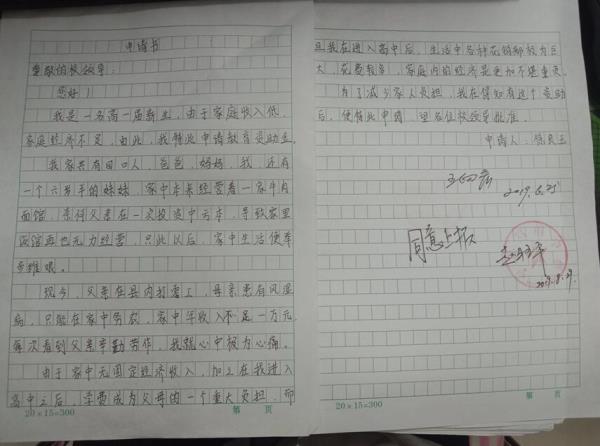 申请书
尊敬的校领导:
您好!
我是一名高一届新生,由于家庭收入低,
家庭经济不足,由此,我特此申请教育资助金。
我家共有四口人,爸爸,妈妈,我,还有
一个六岁半的妹妹,家中本来经营着一家牛肉
面馆,奈何父亲在一次投资中亏本,导致家里
饭馆再也无力经营,只此以后,家中生活便举
步维艰。
现今,父亲在县内打零工,母亲患有风湿
病,只能在家中务农,家中年收入不足一万元,
每次看到父亲辛勤劳作,我就心中极为心痛。
由于家中无固定经济收入,加之在我进入
高中之后,学费成为父母的一个重大负担,而
20×15=300
第 页
且我在进入高中后,生活中各种花销都极为巨
大,花费较多,家庭内的经济是更加不堪重负
为了减少家人负担,我在得知有这个资助
后,便特此申请,望各位校领导批准。
申请人:
2019.8.25
同意上报
2019.8.29
20×15=300
第 页